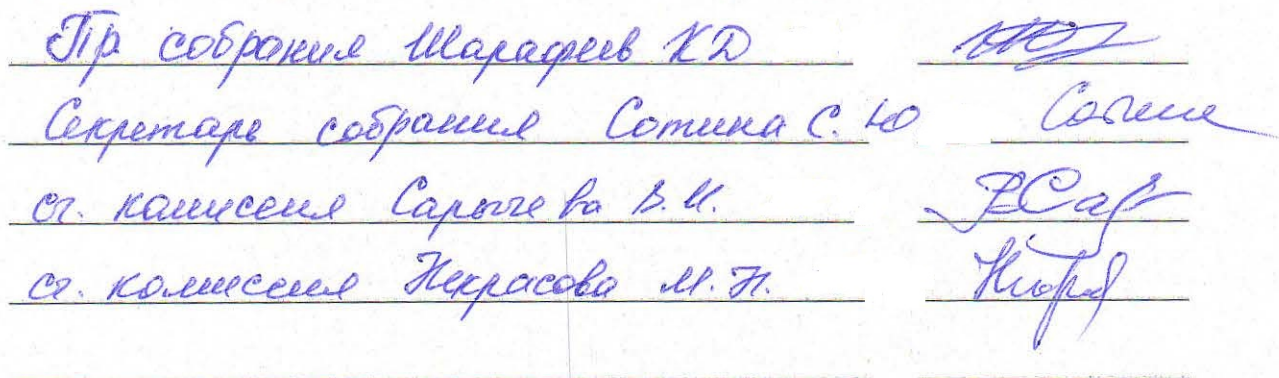 Пр. собрания Шарафиев КД
Секретарь собрания Сотина С. Ю Сотина
сч. комиссия Сарычева В. И.
сч. комиссия Некрасова М. Н.